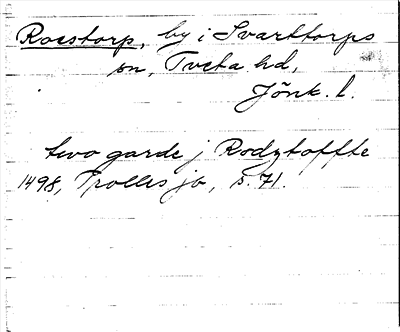 Rosstorp, by i Svarttorps
sn, Tveta hd,
Jönk. l.
two garde j Rodztoffte
1498, Trolles jb, s. 71.